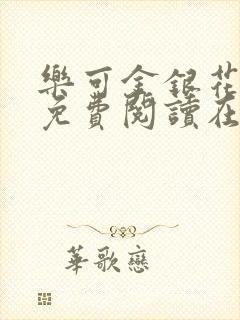 樂可金銀花
免費閱讀在
華歌戀